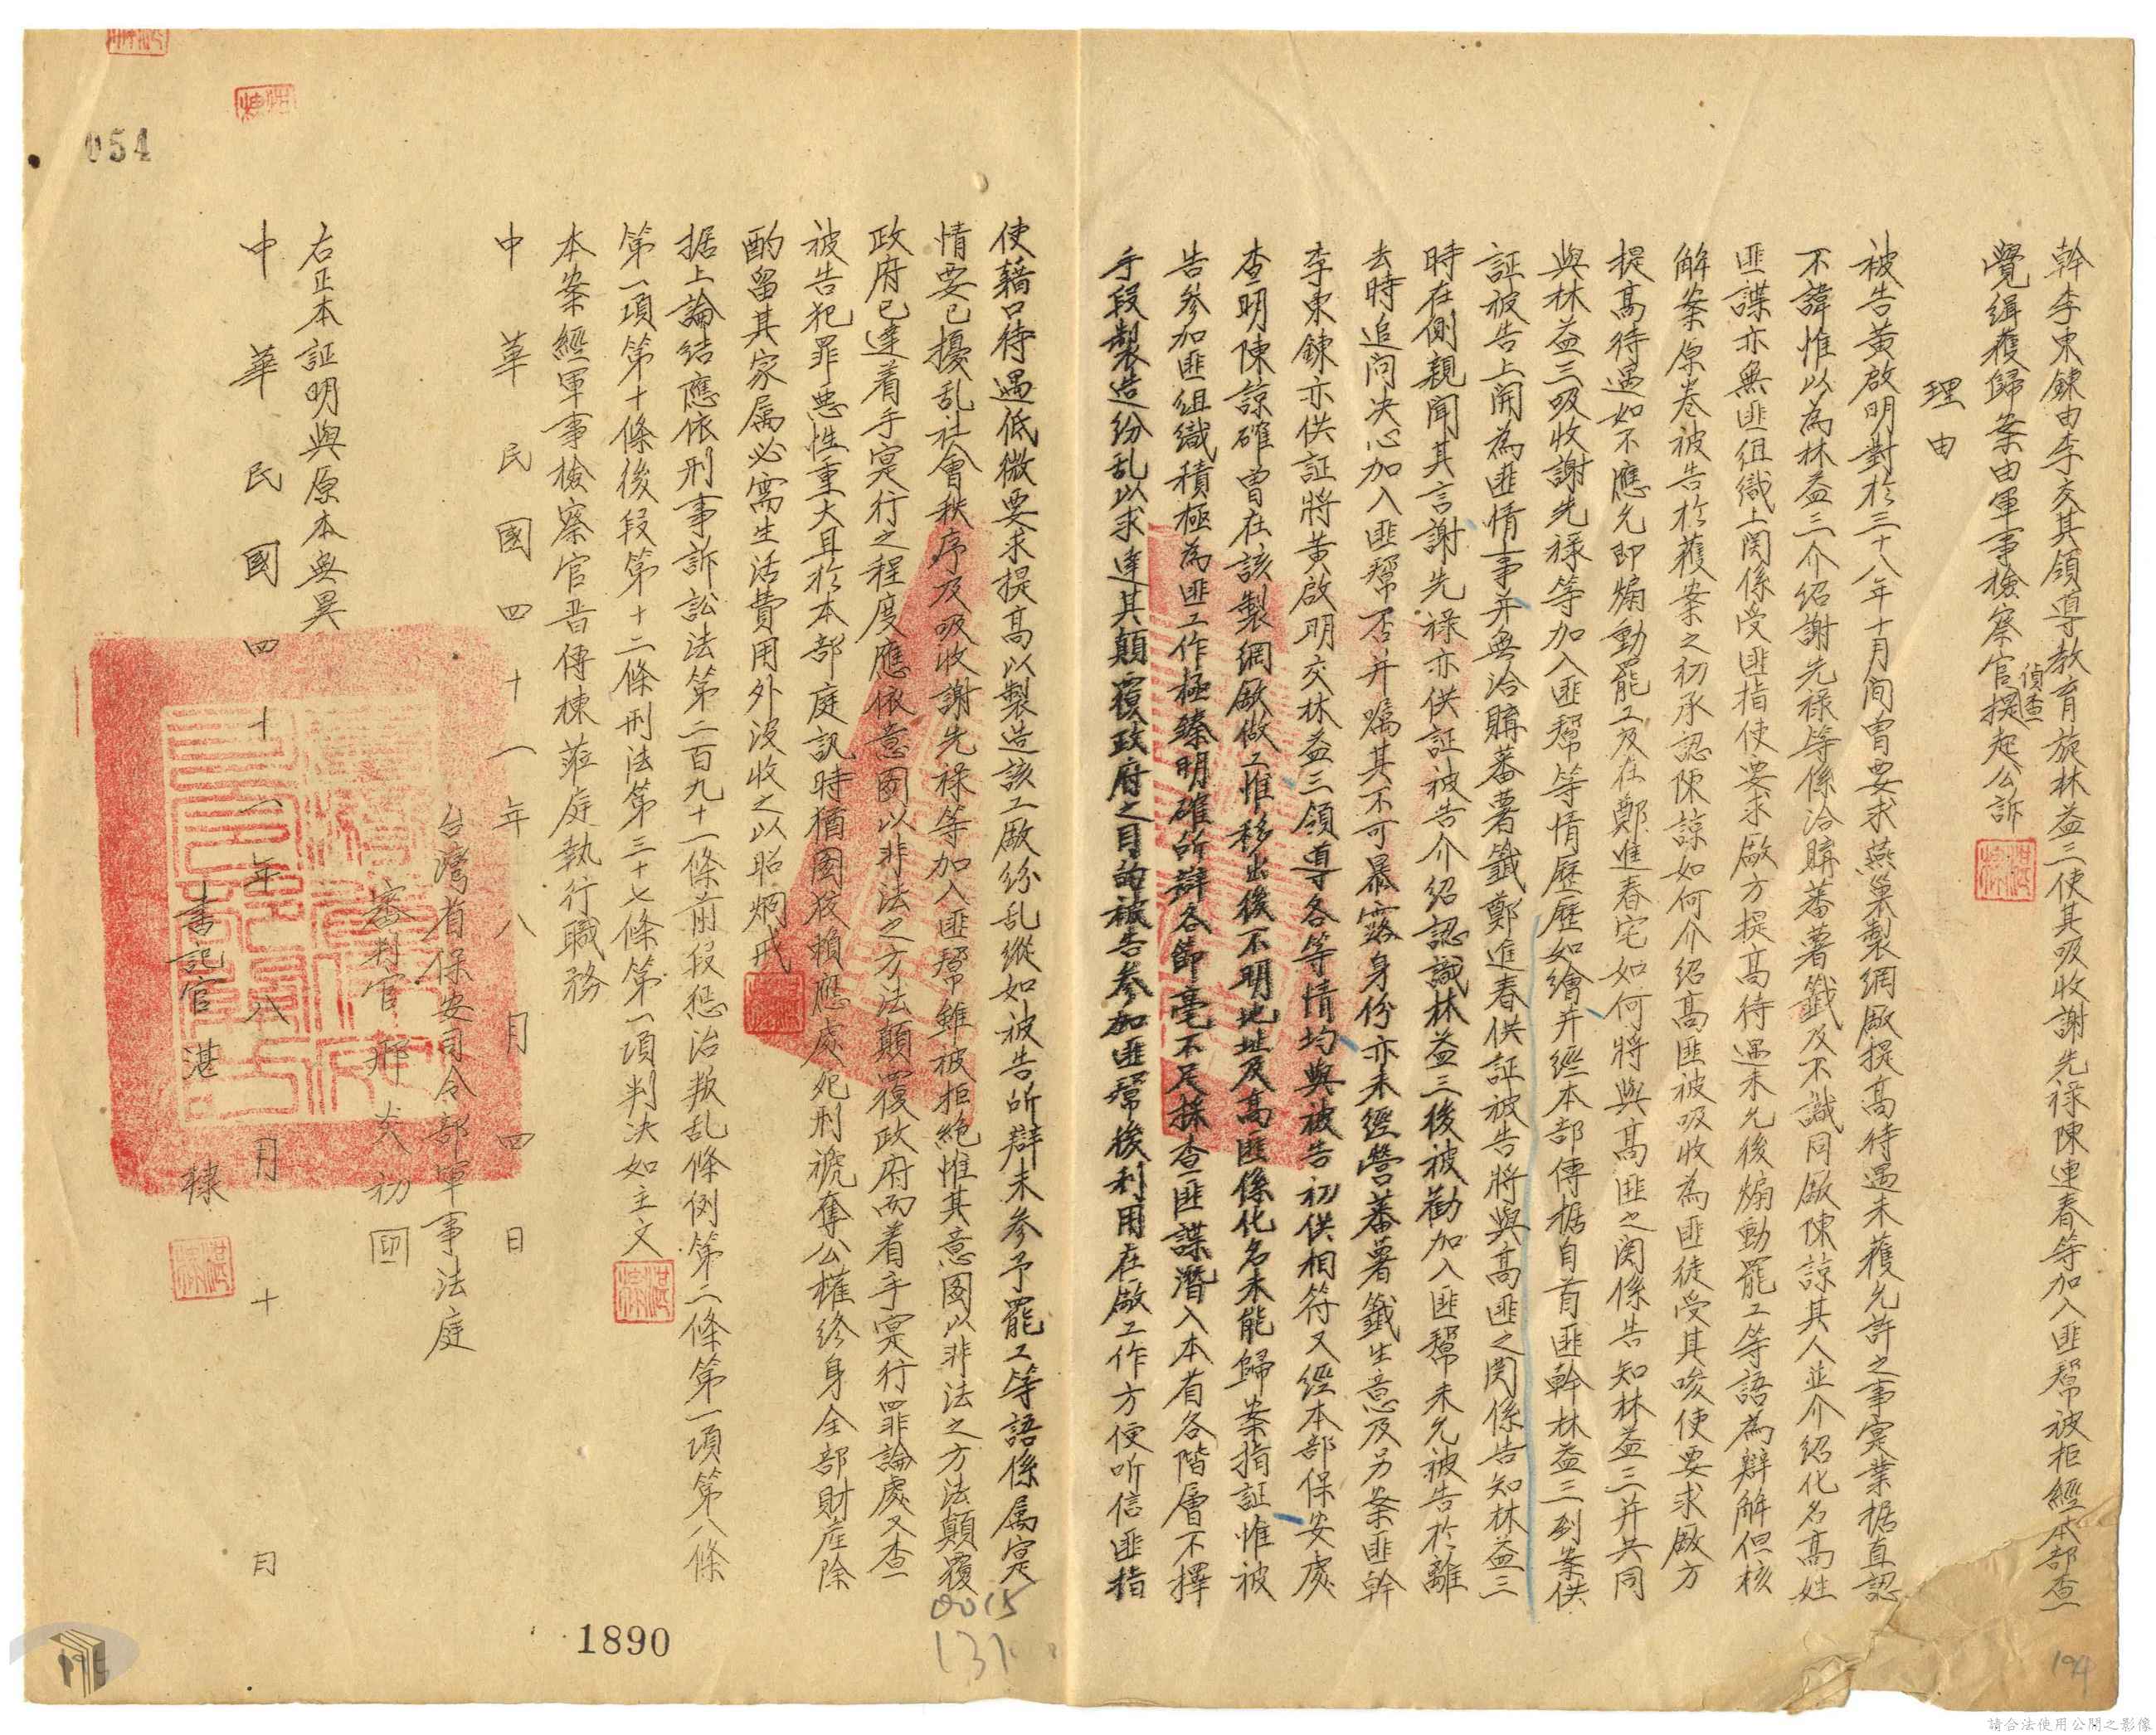 幹李東鍊由李交其領導教育旋林益三使其吸收謝先祿陳連春等加入匪幫被拒經本部查
覺緝獲歸案由軍事檢察官偵查提起公訴
理由
被告黃啟明對於三十八年十月間曾要求燕巢製網廠提高待遇未獲允許之事寔業据直認
不諱惟以為林益三介紹謝先祿等係洽購蕃薯籤及不識同廠陳諒其人並介紹化名高姓
匪諜亦無匪組織上関係受匪指使要求廠方提高待遇未允後煽動罷工等語為辯解但核
解案原卷被告於獲案之初承認陳諒如何介紹高匪被吸收為匪徒受其唆使要求廠方
提高待遇如不應允即煽動罷工及在鄭進春宅如何將與高匪之関係告知林益三并共同
與林益三吸收謝先祿等加入匪幫等情歷歷如繪并經本部傳据自首匪幹林益三到案供
証被告上開為匪情事并無洽購蕃薯籤鄭進春供証被告將與高匪之関係告知林益三
時在側親聞其言謝先祿亦供証被告介紹認識林益三後被勸加入匪幫未允被告於離
去時追问决心加入匪幫否并嘱其不可暴露身份亦未經營蕃薯籤生意及另案匪幹
李東鍊亦供証將黃啟明交林益三領導各等情均與被告初供相符又經本部保安處
查明陳諒確曾在該製網廠做工惟移出後不明地址及高匪係化名未能歸案指証惟被
告參加匪組織積極為匪工作極臻明確所辯各節毫不足採查匪諜潛入本省各階層不擇
手段製造紛乱以求達其顛覆政府之目的被告參加匪幫後利用在廠工作方便听信匪指
使藉口待遇低微要求提高以製造該工廠紛乱縱如被告所辯未參予罷工等語係属寔
情要已擾乱社會秩序及吸收謝先祿等加入匪幫雖被拒絶惟其意圖以非法之方法顛覆
政府已達着手寔行之程度應依意圖以非法之方法顛覆政府而着手寔行罪論處又查
被告犯罪惡性重大且於本部庭訊時猶圖狡賴應處死刑褫奪公權終身全部財産除
酌留其家属必需生活費用外沒收之以昭炯戒
据上論結應依刑事訴訟法第二百九十一條前段惩治叛乱條例第二條第一項第八條
第一項第十條後段第十二條刑法第三十七條第一項判决如主文
本案經軍事檢察官晋傳棟蒞庭執行職務
中華民國四十一年八月四日
台灣省保安司令部軍事法庭
審判官邢炎初印
右正本証明與原本無異
中華民國四十一年八月十日
書記官湛棣
054
0015
131
1890
194
請合法使用公開之影像